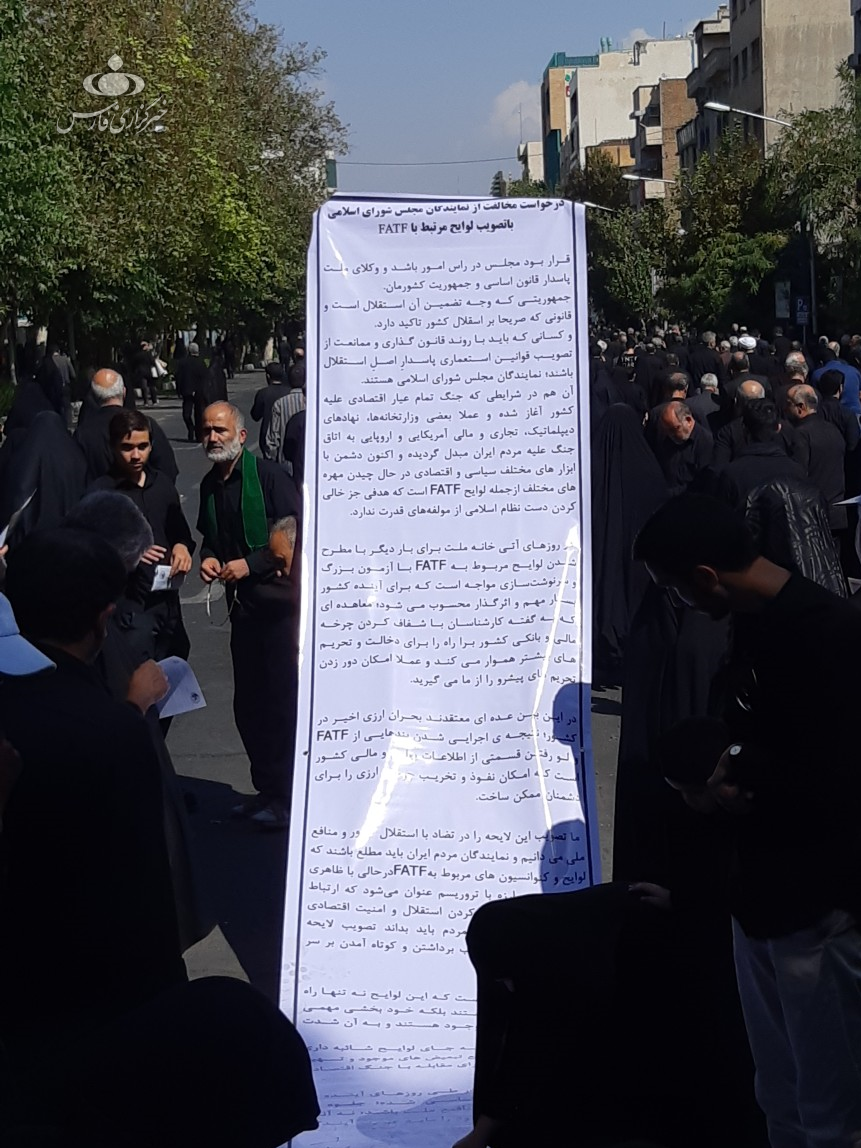 خبرگزاری فارس
درخواست مخالفت از نمایندگان مجلس شورای اسلامی
باتصویب لوایح مرتبط با FATF
قرار بود مجلس در راس امور باشد و وکلای ملت
پاسدار قانون اساسی و جمهوریت کشورمان.
جمهوریتی که وجه تضمین آن استقلال است و
قانونی که صریحا بر اسقلال کشور تاکید دارد.
و کسانی که باید با روند قانون گذاری و ممانعت از
تصویب قوانین استعماری پاسدار اصل استقلال
باشند؛ نمایندگان مجلس شورای اسلامی هستند.
آن هم در شرایطی که جنگ تمام عیار اقتصادی علیه
کشور آغاز شده و عملا بعضی وزارتخانه‌ها، نهادهای
دیپلماتیک، تجاری و مالی آمریکایی و اروپایی به اتاق
جنگ علیه مردم ایران مبدل گردیده و اکنون دشمن با
ابزار های مختلف سیاسی و اقتصادی در حال چیدن مهره
های مختلف ازجمله لوایح FATF است که هدفی جز خالی
کردن دست نظام اسلامی از مولفه‌های قدرت ندارد.
روزهای آتی خانه ملت برای بار دیگر با مطرح
شدن لوایح مربوط به FATF با آزمون بزرگ
و سرنوشت‌سازی مواجه است که برای آینده کشور
مهم و اثرگذار محسوب می شود؛ معاهده ای
که به گفته کارشناسان با شفاف کردن چرخه
مالی و بانکی کشور برا راه را برای دخالت و تحریم
های بیشتر هموار می کند و عملا امکان دور زدن
تحریم های پیشرو را از ما می گیرید.
در این بین عده ای معتقدند بحران ارزی اخیر در
کشور؛ نتیجه ی اجرایی شدن بندهایی از FATF
و لو رفتن قسمتی از اطلاعات و مالی کشور
است که امکان نفوذ و تخریب ارزی را برای
دشمنان ممکن ساخت.
ما تصویب این لایحه را در تضاد با استقلال کشور و منافع
ملی می دانیم و نمایندگان مردم ایران باید مطلع باشند که
لوایح و کنوانسیون های مربوط به FATFدرحالی با ظاهری
با تروریسم عنوان می‌شود که ارتباط
کردن استقلال و امنیت اقتصادی
مردم باید بداند تصویب لایحه
برداشتن و کوتاه آمدن بر سر
است که این لوایح نه تنها راه
بلکه خود بخشی مهمی
هستند و به آن شدت
جای لوایح شائبه داری
تبعیض های موجود و
مقابله با جنگ
طی روزهای آینده